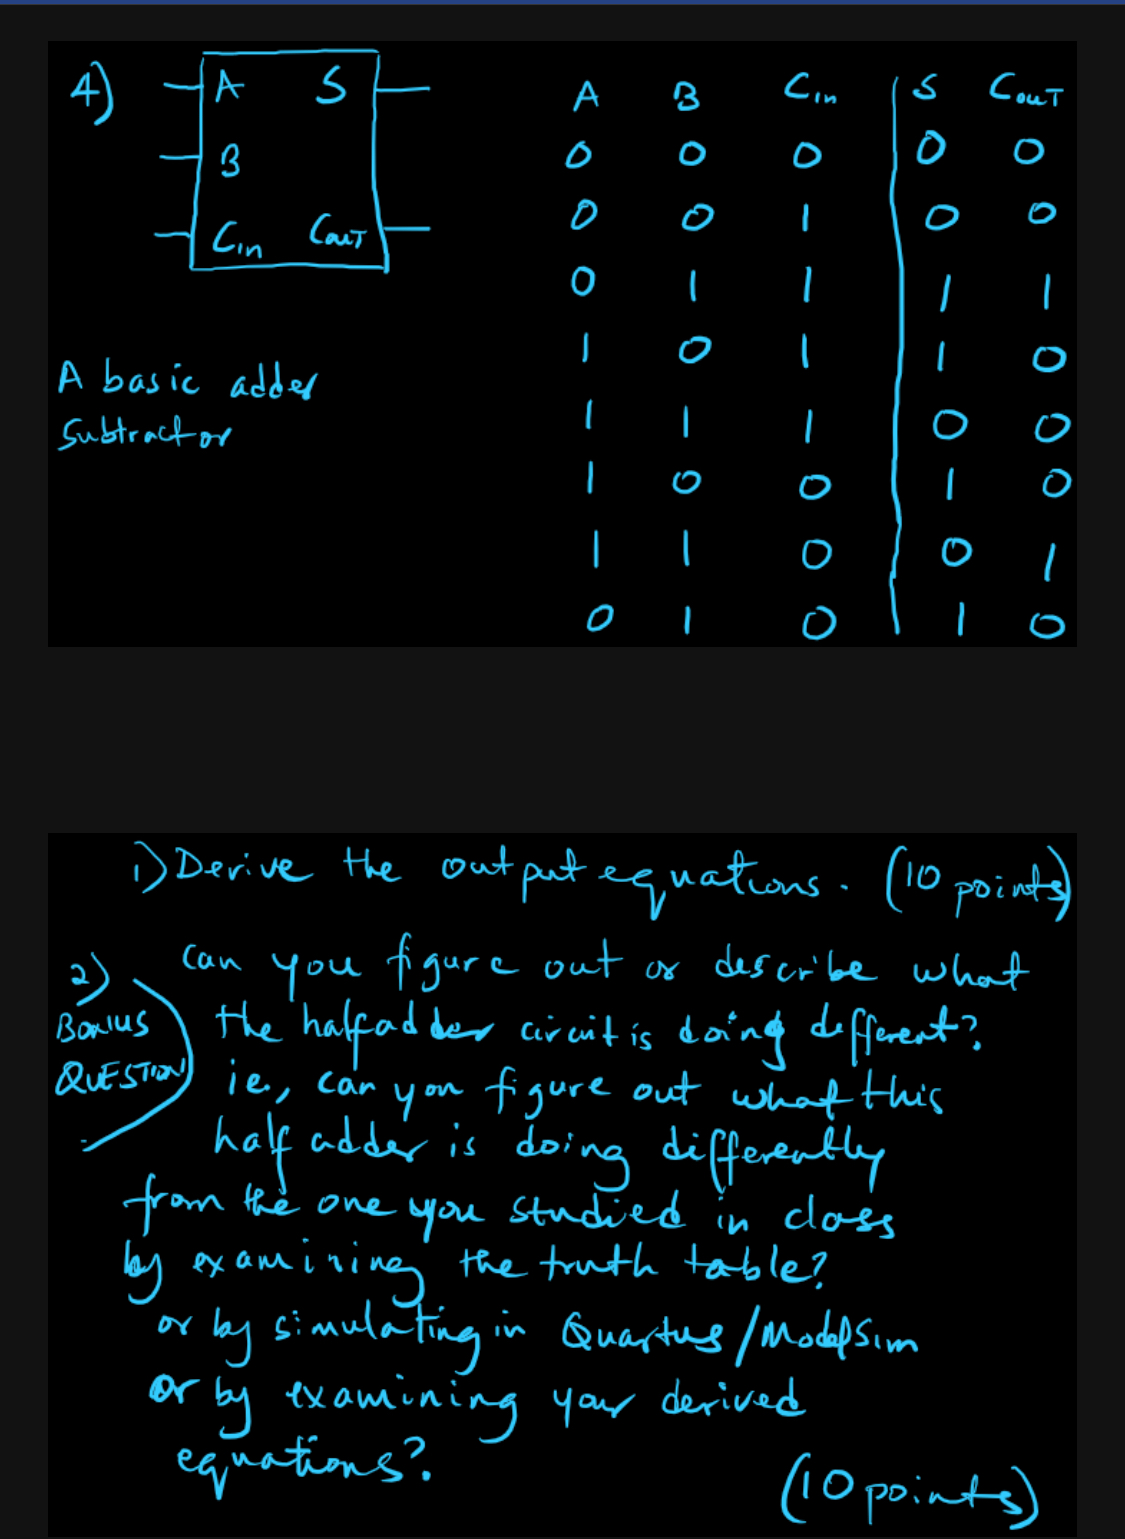 4)
A S
B
Cin CouT
A basic adder
subtractor
A B Cin S CouT
0 0 0 0 0
0 0 1 0 0
0 1 1 1 1
1 0 1 1 0
1 1 1 0 0
1 0 0 1 0
1 1 0 0 1
0 1 0 1 0
1) Derive the output equations. (10 points)
2) BONUS QUESTION
Can you figure out or describe what
the halfadder circuit is doing different?
ie., can you figure out what this
half adder is doing differently
from the one you studied in class
by examining the truth table?
or by simulating in Quartus/ModelSim
or by examining your derived
equations?
(10 points)